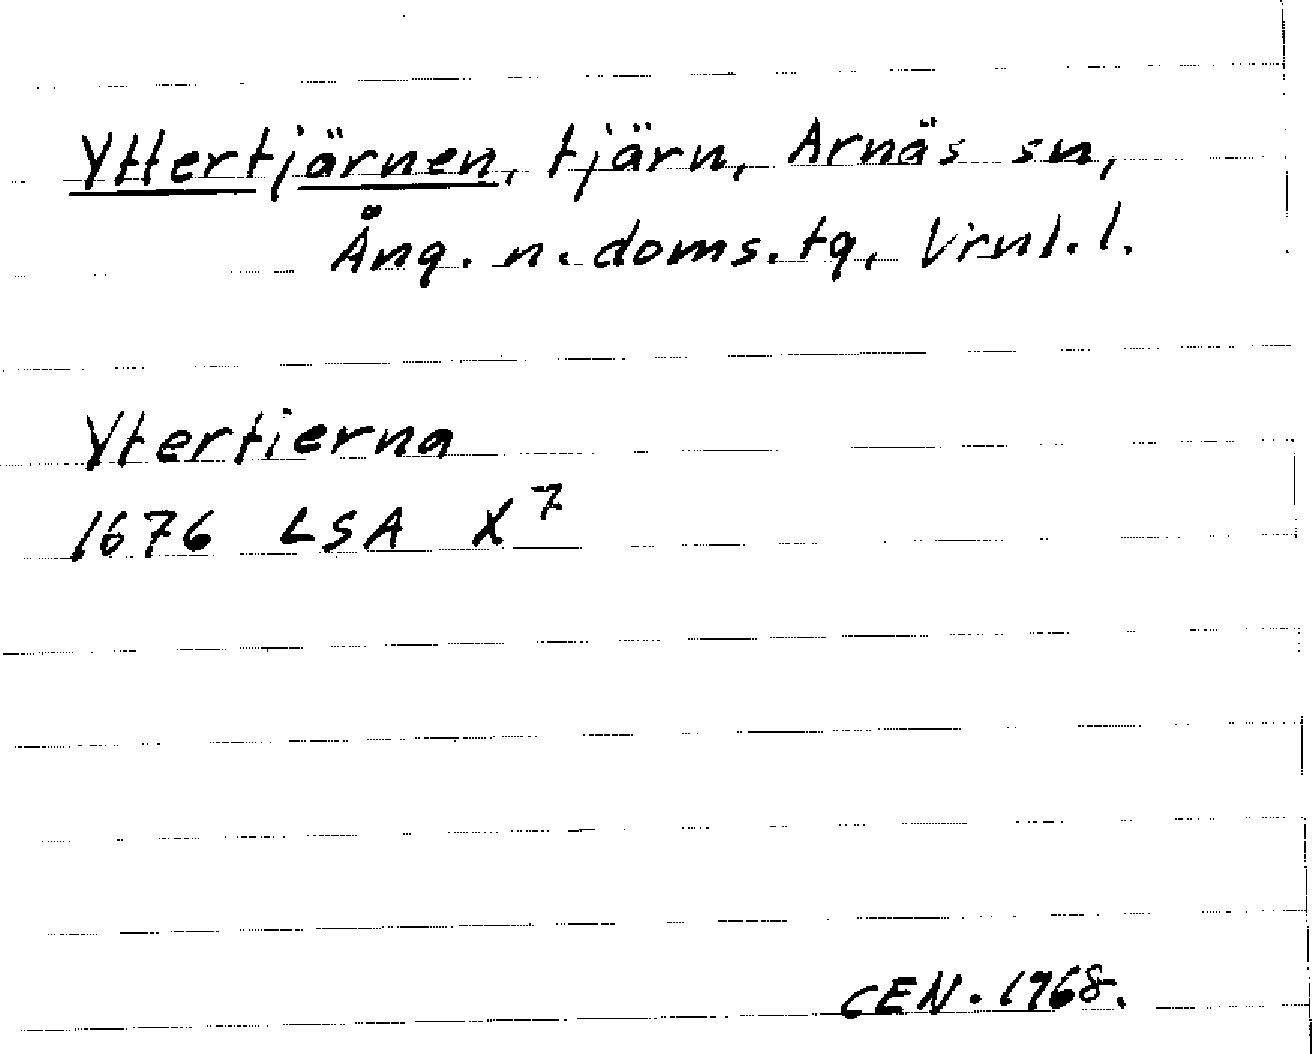 Yttertjärnen, tjärn, Arnäs sn,
Ång. n. doms. tg, Vrnl. l.
Ytertierna
1676 LSA X⁷
CEN. 1968.